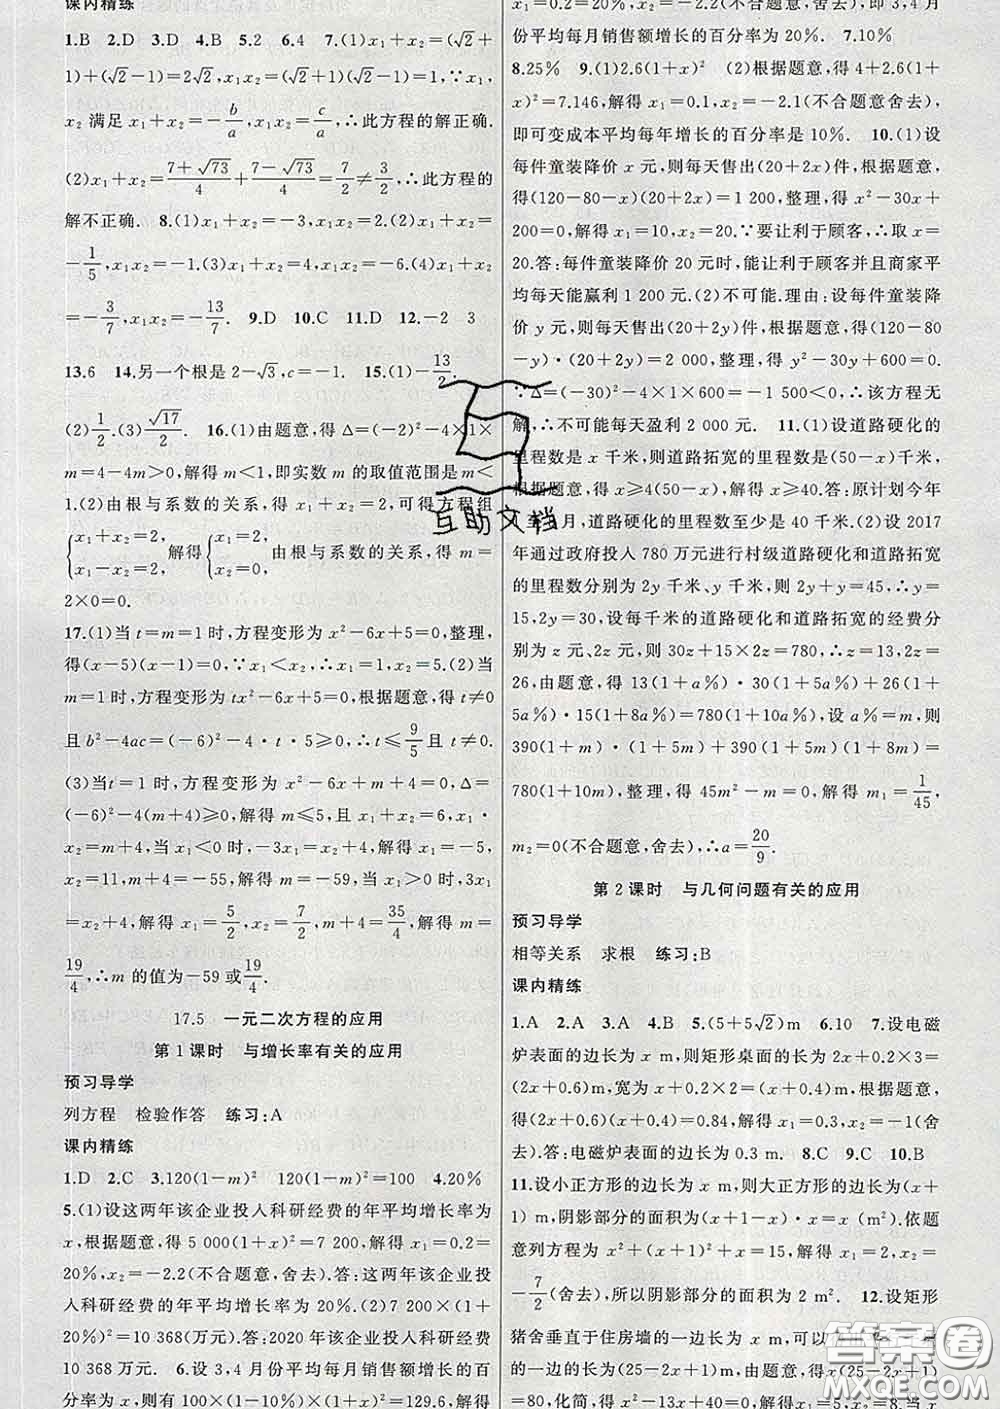 课内精练
1.B 2.D 3.D 4.B 5.2 6.4 7.(1)x₁+x₂=(√2+
1)+(√2-1)=2√2,x₁x₂=(√2+1)(√2-1)=1,∵x₁,
x₂满足x₁+x₂=-b/a,x₁x₂=c/a,∴此方程的解正确.
(2)x₁+x₂=(7+√73)/4+(7-√73)/4=7/2≠3/2,∴此方程的
解不正确. 8.(1)x₁+x₂=-3,x₁x₂=2.(2)x₁+x₂=
-1/5,x₁x₂=-1.(3)x₁+x₂=4,x₁x₂=-6.(4)x₁+x₂
=-3/7,x₁x₂=-13/7. 9.D 10.C 11.D 12.-2 3
13.6 14.另一个根是2-√3,c=-1. 15.(1)-13/2.
(2)1/2.(3)√17/2. 16.(1)由题意,得Δ=(-2)²-4×1×
m=4-4m>0,解得m<1,即实数m的取值范围是m<
1.(2)由根与系数的关系,得x₁+x₂=2,可得方程组
{x₁+x₂=2, x₁-x₂=2, 解得{x₁=2, x₂=0, 由根与系数的关系,得m=
2×0=0.
17.(1)当t=m=1时,方程变形为x²-6x+5=0,整理,
得(x-5)(x-1)=0,∵x₁<x₂,∴x₁=1,x₂=5.(2)当
m=1时,方程变形为tx²-6x+5=0,根据题意,得t≠0
且b²-4ac=(-6)²-4·t·5≥0,∴t≤9/5且t≠0.
(3)当t=1时,方程变形为x²-6x+m+4=0,Δ=
(-6)²-4(m+4)≥0,解得m≤5,且x₁+x₂=6,x₁·
x₂=m+4,当x₁<0时,-3x₁=x₂+4,解得x₁=-5,
x₂=11,m+4=-55,解得m=-59,当x₁>0时,3x₁
=x₂+4,解得x₁=5/2,x₂=7/2,m+4=35/4,解得m=
19/4,∴m的值为-59或19/4.
17.5 一元二次方程的应用
第1课时 与增长率有关的应用
预习导学
列方程 检验作答 练习:A
课内精练
1.D 2.C 3.120(1-m)² 120(1-m)²=100 4.20%
5.(1)设这两年该企业投入科研经费的年平均增长率为
x,根据题意,得5 000(1+x)²=7 200,解得x₁=0.2=
20%,x₂=-2.2(不合题意,舍去).答:这两年该企业投
入科研经费的年平均增长率为20%.(2)7 200×(1+
20%)²=10 368(万元).答:2020年该企业投入科研经费
10 368万元. 6.设3,4月份平均每月销售额增长的百
分率为x,则有100×(1-10%)×(1+x)²=129.6,解得
x₁=0.2=20%,x₂=-2.2(不合题意,舍去),即3,4月
份平均每月销售额增长的百分率为20%. 7.10%
8.25% 9.(1)2.6(1+x)² (2)根据题意,得4+2.6(1+
x)²=7.146,解得x₁=0.1,x₂=-2.1(不合题意舍去),
即可变成本平均每年增长的百分率是10%. 10.(1)设
每件童装降价x元,则每天售出(20+2x)件,根据题意,
得(120-80-x)(20+2x)=1 200,整理,得x²-30x+
200=0,解得x₁=10,x₂=20.∵要让利于顾客,∴取x=
20.答:每件童装降价20元时,能让利于顾客并且商家平
均每天能赢利1 200元.(2)不可能.理由:设每件童装降
价y元,则每天售出(20+2y)件,根据题意,得(120-80
-y)·(20+2y)=2 000,整理,得y²-30y+600=0.
∵Δ=(-30)²-4×1×600=-1 500<0,∴该方程无
解,∴不可能每天盈利2 000元. 11.(1)设道路硬化的
里程数是x千米,则道路拓宽的里程数是(50-x)千米,
根据题意,得x≥4(50-x),解得x≥40.答:原计划今年
1至 月,道路硬化的里程数至少是40千米.(2)设2017
年通过政府投入780万元进行村级道路硬化和道路拓宽
的里程数分别为2y千米、y千米,则2y+y=45,∴y=
15,2y=30,设每千米的道路硬化和道路拓宽的经费分
别为z元、2z元,则30z+15×2z=780,∴z=13,2z=
26,由题意,得13(1+a%)·30(1+5a%)+26(1+
5a%)·15(1+8a%)=780(1+10a%),设a%=m,则
390(1+m)·(1+5m)+390(1+5m)(1+8m)=
780(1+10m),整理,得45m²-m=0,解得m₁=1/45,
m₂=0(不合题意,舍去),∴a=20/9.
第2课时 与几何问题有关的应用
预习导学
相等关系 求根 练习:B
课内精练
1.A 2.A 3.A 4.B 5.(5+5√2)m 6.10 7.设电磁
炉表面的边长为x m,则矩形桌面的长为2x+0.2×3=
(2x+0.6)m,宽为x+0.2×2=(x+0.4)m,根据题意,
得(2x+0.6)(x+0.4)=0.84,解得x₁=0.3,x₂=-1(舍
去).答:电磁炉表面的边长为0.3 m. 8.C 9.C 10.B
11.设小正方形的边长为x m,则大正方形的边长为(x+
1) m,阴影部分的面积为(x+1)·x (m²).依题
意列方程为x²+(x+1)²+x=15,解得x₁=2,x₂=
-7/2(舍去),所以阴影部分的面积为2 m². 12.设矩形
猪舍垂直于住房墙的边长为x m,可以
的一边的长为(25-2x+1)m,由题意,得x(25-2x+1)
=80,化简,得x²-13x+40=0,解得x₁=5,x₂=8,当x
互助文档
答案圈
MXQE.COM